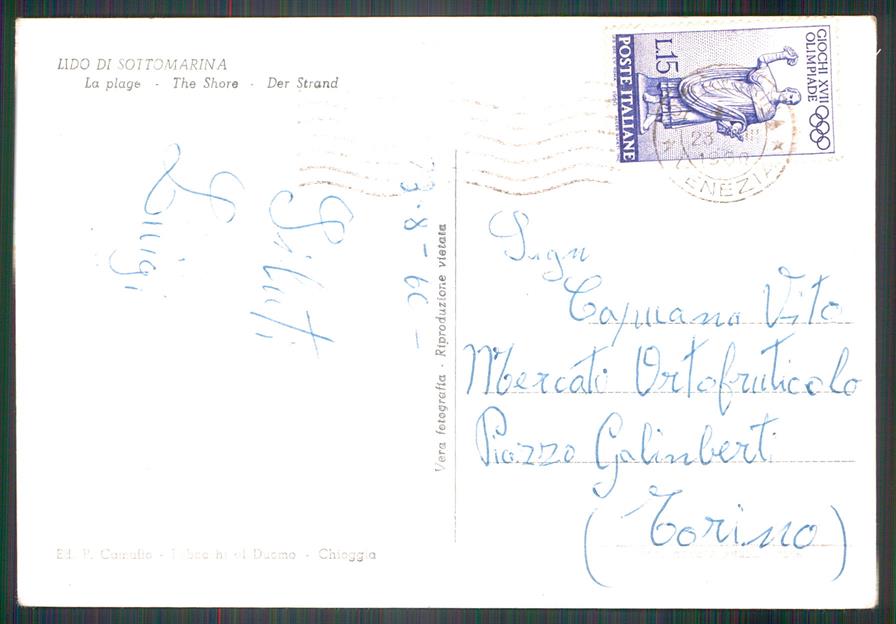 LIDO DI SOTTOMARINA
La plage - The Shore - Der Strand
GIOCHI XVII
OLIMPIADE
L.15
POSTE ITALIANE
23
1960
VENEZIA
23-8-60-
Saluti
Luigi
Vera fotografia - Riproduzione vietata
Sign
Capuano Vito
Mercati Ortofruticolo
Piazzo Galinberti
(Torino)
Ed. P. al Duomo - Chioggia